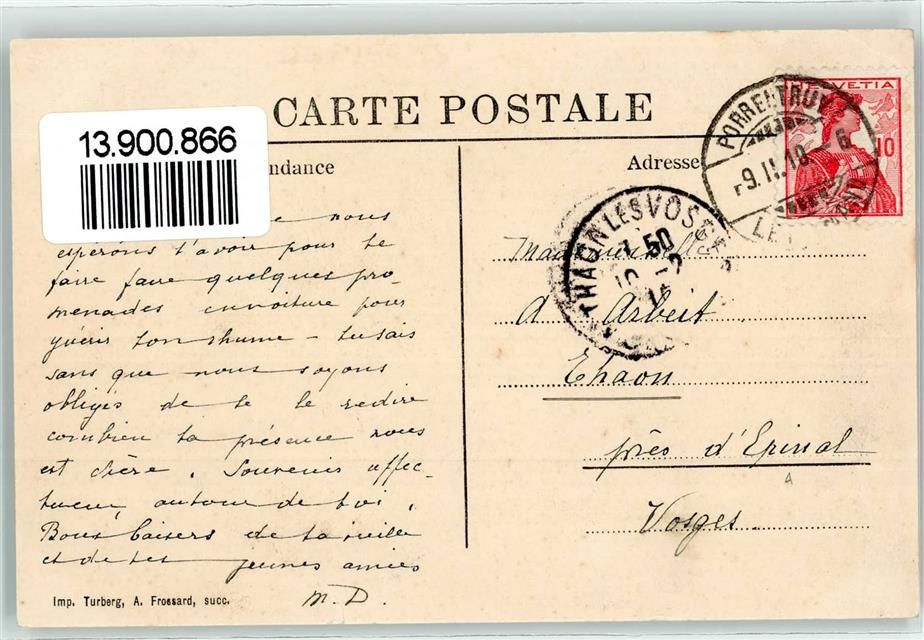 CARTE POSTALE
13.900.866
ndance
Adresse
nous
espérons t'avoir pour te
faire faire quelques pro-
menades en voiture pour
guérir ton rhume – tu sais
sans que nous soyons
obligés de te le redire
combien ta présence nous
est chère. Souvenir affec-
tueux autour de toi.
Bons baisers de ta vieille
et de tes jeunes amies
M. D.
Imp. Turberg, A. Frossard, succ.
HELVETIA
10
PORRENTRUY
9.II.10 - 6
THAON LES VOSGES
Mademoiselle
A Arbeit
Thaon
près d'Epinal
Vosges